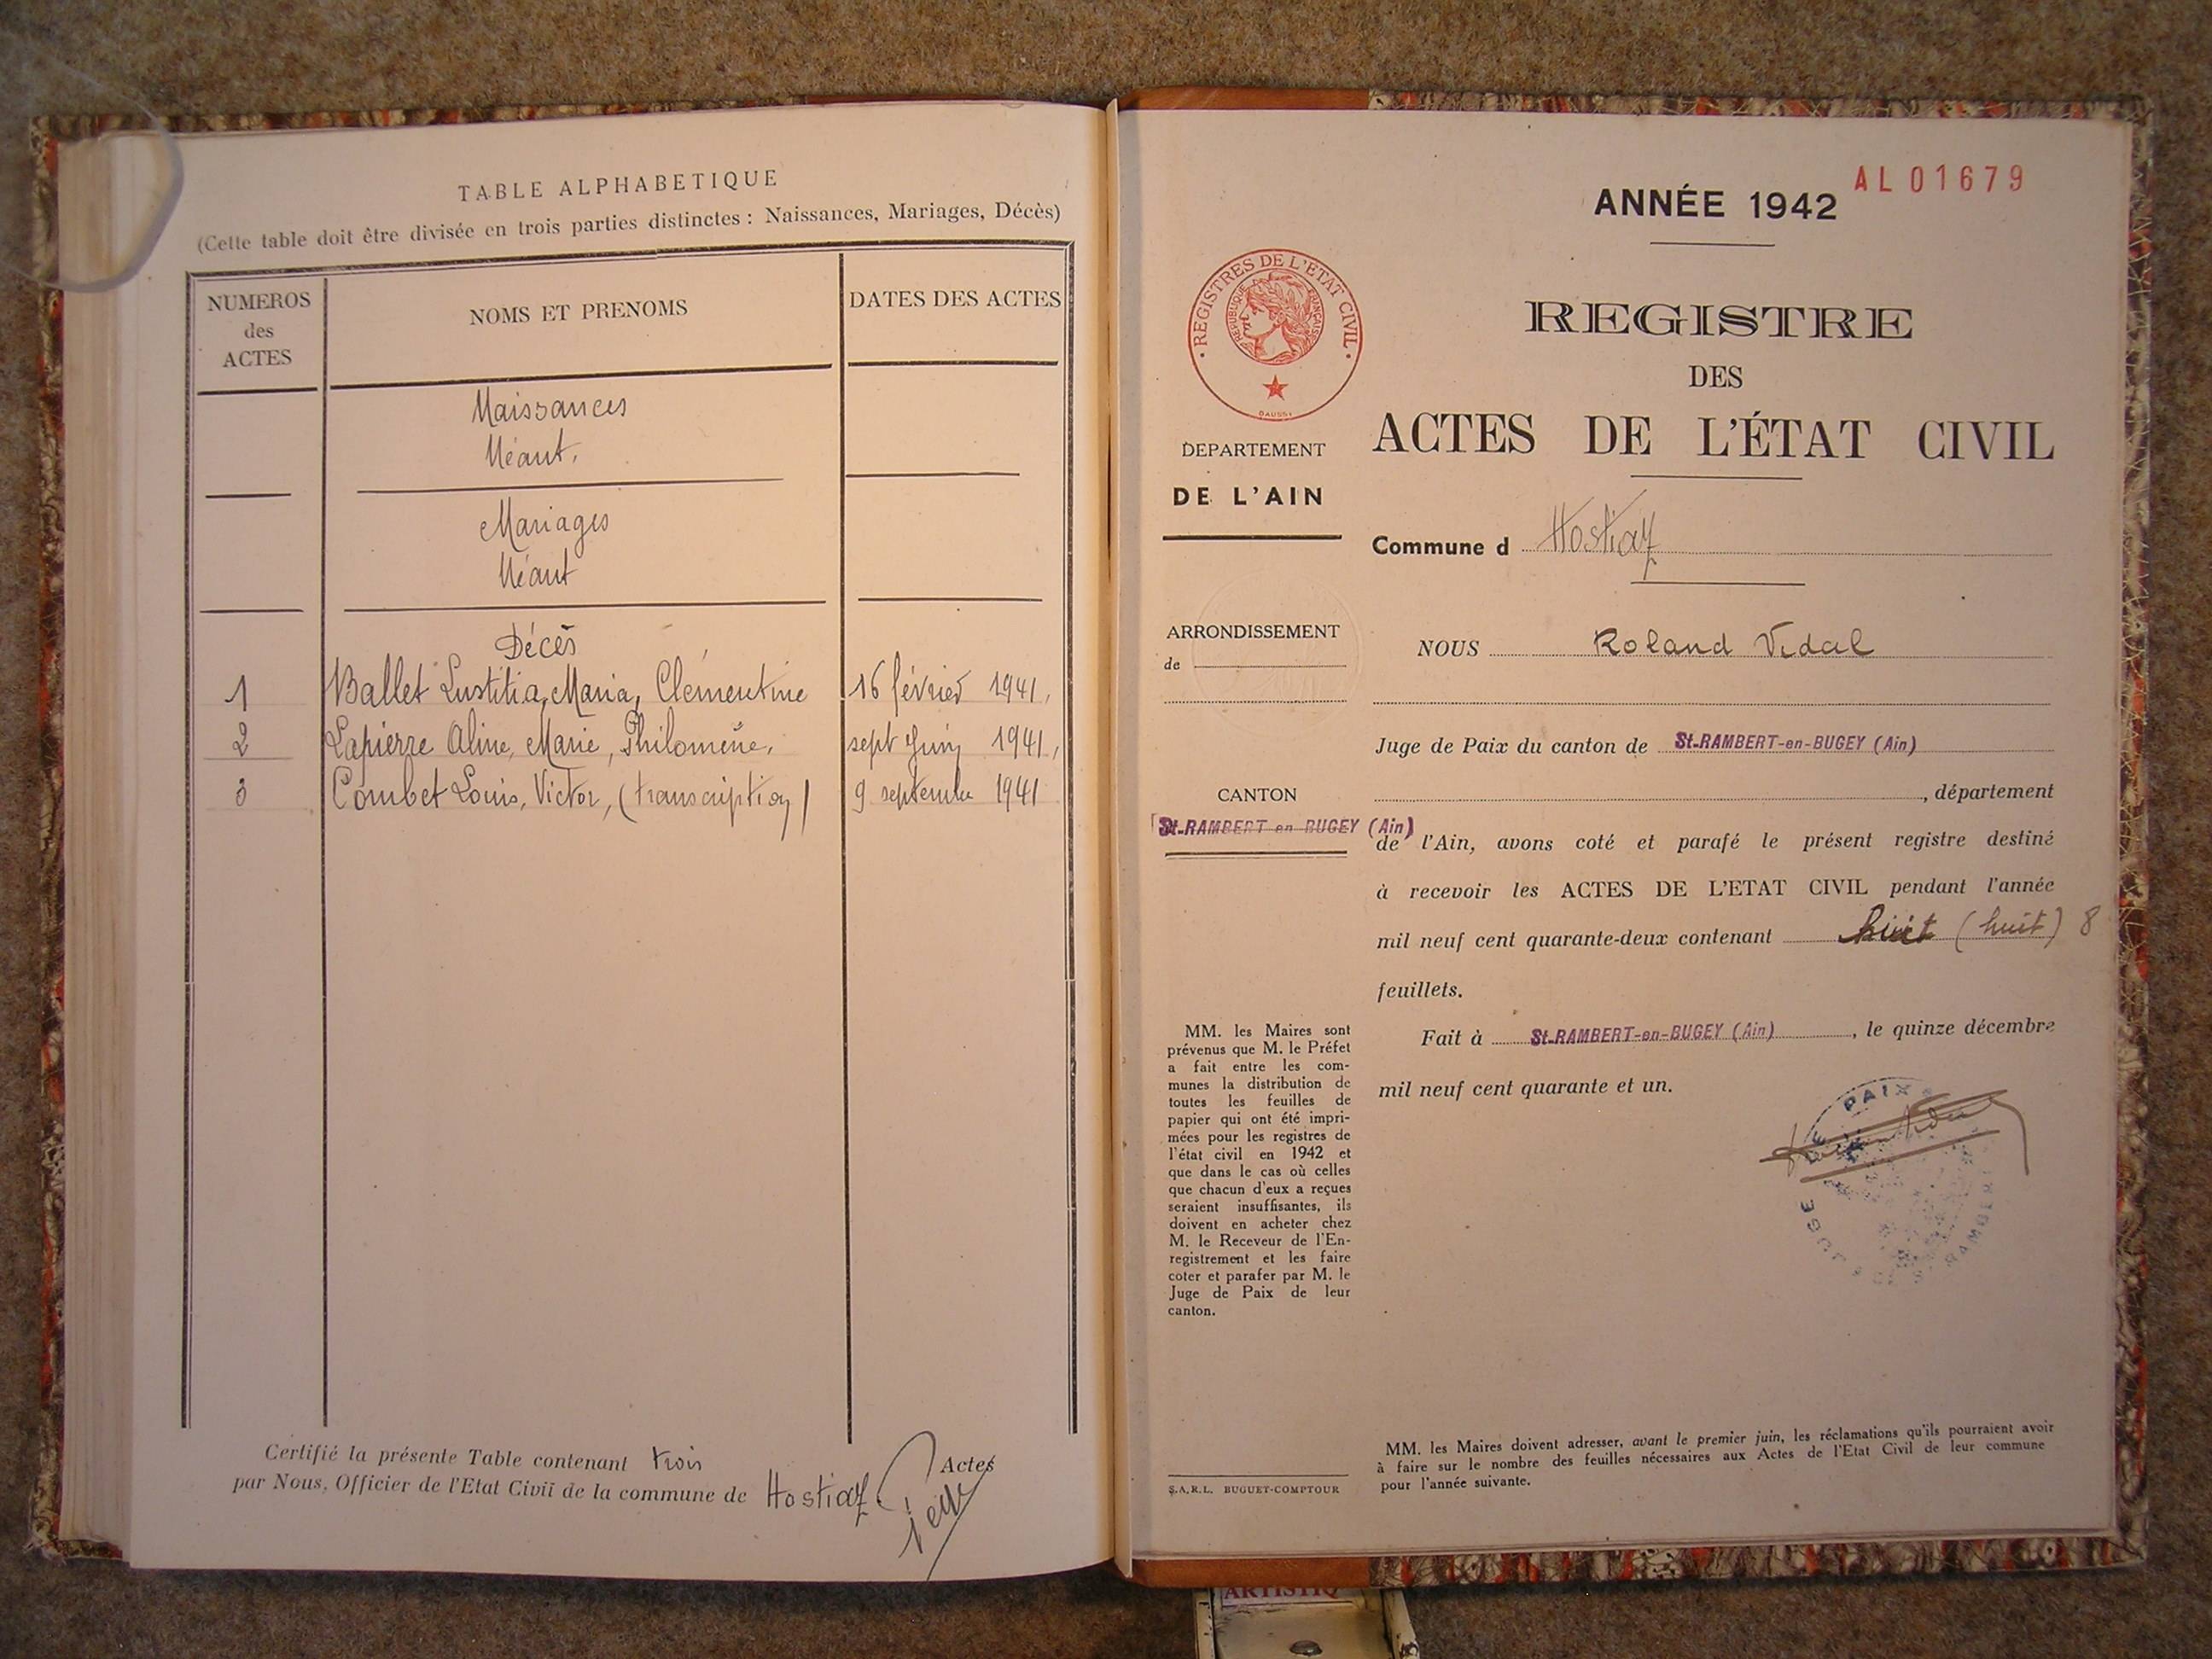 TABLE ALPHABETIQUE
(Cette table doit être divisée en trois parties distinctes : Naissances, Mariages, Décès)
NUMEROS
des
ACTES
NOMS ET PRENOMS
DATES DES ACTES
Naissances
Néant.
Mariages
Néant
Décès
1 Ballet Lustitia, Maria, Clémentine 16 février 1941.
2 Lapierre Aline, Marie, Philomène, sept Juin 1941,
3 Combet Louis, Victor, (transcription) 9 septembre 1941
Certifié la présente Table contenant trois Actes
par Nous, Officier de l'Etat Civil de la commune de Hostiaz
ANNÉE 1942
AL01679
REGISTRES DE L'ÉTAT CIVIL
REPUBLIQUE FRANÇAISE
REGISTRE
DES
ACTES DE L'ÉTAT CIVIL
DEPARTEMENT
DE L'AIN
Commune d Hostiaz
ARRONDISSEMENT
de
NOUS Roland Vidal
Juge de Paix du canton de St-RAMBERT-en-BUGEY (Ain)
CANTON
St-RAMBERT-en-BUGEY (Ain)
, département
de l'Ain, avons coté et parafé le présent registre destiné
à recevoir les ACTES DE L'ETAT CIVIL pendant l'année
mil neuf cent quarante-deux contenant huit (huit) 8
feuillets.
Fait à St-RAMBERT-en-BUGEY (Ain), le quinze décembre
mil neuf cent quarante et un.
PAIX
JUGE
MM. les Maires sont
prévenus que M. le Préfet
a fait entre les com-
munes la distribution de
toutes les feuilles de
papier qui ont été impri-
mées pour les registres de
l'état civil en 1942 et
que dans le cas où celles
que chacun d'eux a reçues
seraient insuffisantes, ils
doivent en acheter chez
M. le Receveur de l'En-
registrement et les faire
coter et parafer par M. le
Juge de Paix de leur
canton.
S.A.R.L. BUGUET-COMPTOUR
MM. les Maires doivent adresser, avant le premier juin, les réclamations qu'ils pourraient avoir
à faire sur le nombre des feuilles nécessaires aux Actes de l'Etat Civil de leur commune
pour l'année suivante.
ARTISTIQ